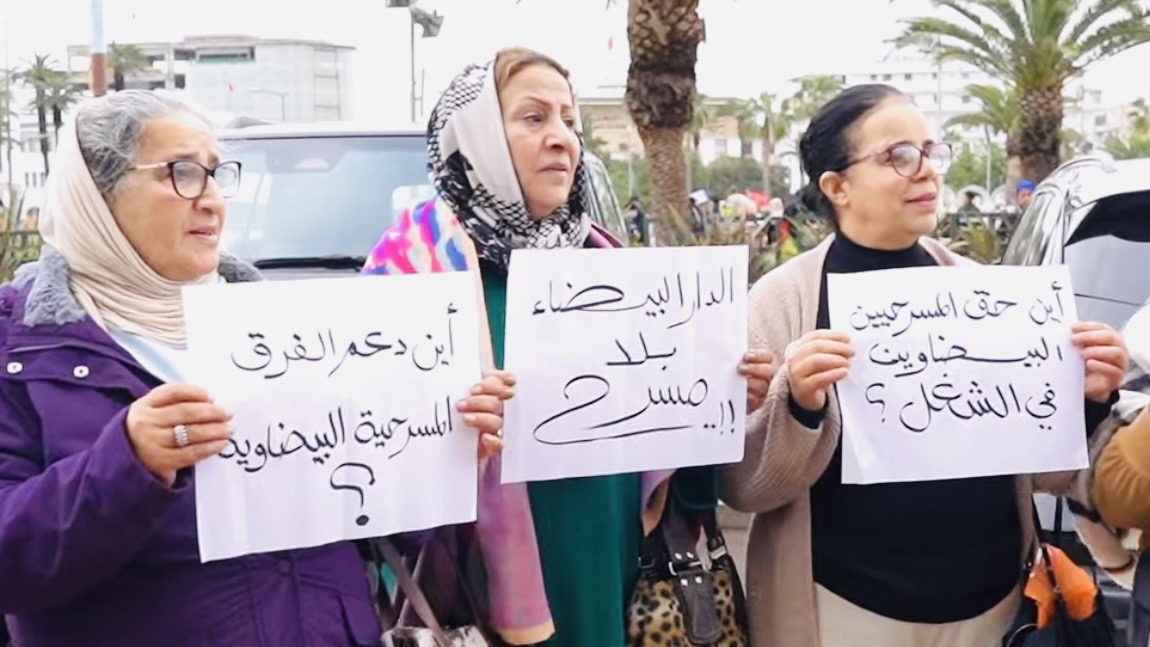 أين دعم الفرق
المسرحية البيضاوية
؟
الدار البيضاء
بلا
مسرح !!
أين حق المسرحيين
البيضاويين
في الشغل ؟